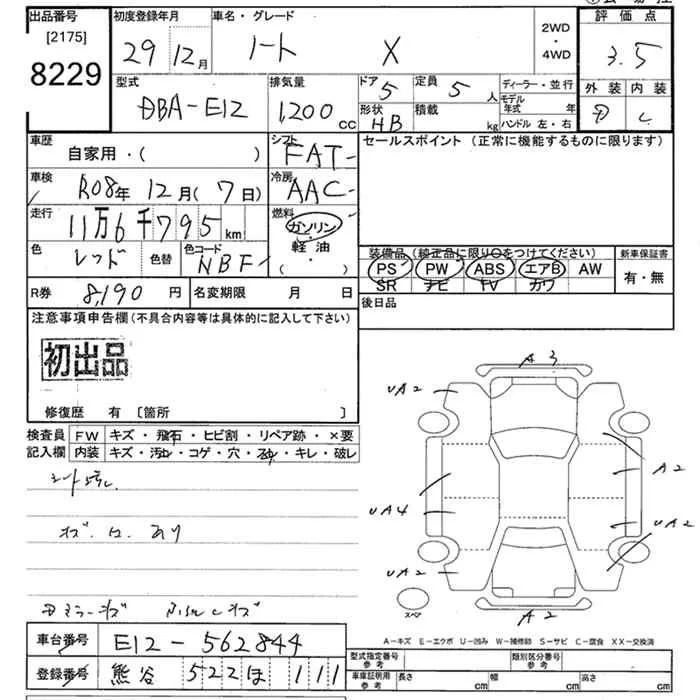 出品番号
[2175]
8229
初度登録年月
29年12月
車名・グレード
ノート X
2WD
・
4WD
評価点
3.5
外装 内装
D C
型式
DBA-E12
排気量
1,200 cc
ドア
5
定員
5人
形状
HB
積載
kg
ディーラー・並行
モデル年式 年
ハンドル 左・右
車歴
自家用・( )
シフト
FAT
冷房
AAC
セールスポイント (正常に機能するものに限ります)
車検
R08年12月(7日)
走行
11万6千795km
燃料
ガソリン
軽油
( )
色
レッド
色替
色コード
NBF
装備品 (純正品に限り○をつけてください)
PS PW ABS エアB AW
SR ナビ TV カワ
新車保証書
有・無
R券
8,190円
名変期限 月 日
後日品
注意事項申告欄(不具合内容等は具体的に記入して下さい)
初出品
修復歴 有 [箇所 ]
検査員記入欄
FW キズ・飛石・ヒビ割・リペア跡・×要
内装 キズ・汚れ・コゲ・穴・スレ・キレ・破れ
キズ・凹あり
A3
UA2
A2
UA4
UA2
UA2
A2
スペア
A-キズ E-エクボ U-凹み W-補修跡 S-サビ C-腐食 XX-交換済
車台番号
E12-562844
登録番号
熊谷 522 ほ 111
型式指定番号
参考
類別区分番号
参考
車庫証明用
参考
長さ cm
幅 cm
高さ cm